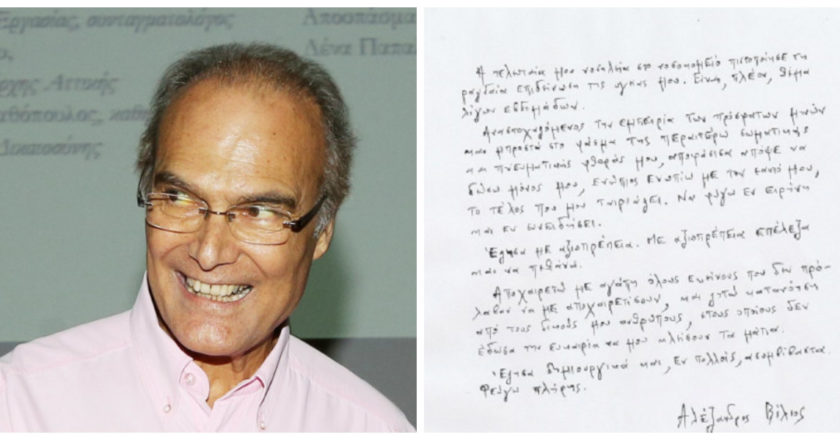 Εργασίας, συνταγματολόγος
Απόσπασμα
Λένα Παπα
ο,
άρχης Αττικής
αθόπουλος, καθη
Δικαιοσύνης
Η τελευταία μου νοσηλεία στο νοσοκομείο πιστοποίησε τη
ραγδαία επιδείνωση της υγείας μου. Είναι, πλέον, θέμα
λίγων εβδομάδων.
Αναστοχαζόμενος την εμπειρία των πρόσφατων μηνών
και μπροστά στο φάσμα της περαιτέρω σωματικής
και πνευματικής φθοράς μου, αποφάσισα απόψε να
δώσω μόνος μου, ενώπιος ενωπίω με τον εαυτό μου,
το τέλος που μου ταιριάζει. Να φύγω εν ειρήνη
και εν συνειδήσει.
Έζησα με αξιοπρέπεια. Με αξιοπρέπεια επέλεξα
και να πεθάνω.
Αποχαιρετώ με αγάπη όλους εκείνους που δεν πρό-
λαβαν να με αποχαιρετίσουν, και ζητώ κατανόηση
από τους δικούς μου ανθρώπους, στους οποίους δεν
έδωσα την ευκαιρία να μου κλείσουν τα μάτια.
Έζησα δημιουργικά και, εν πολλοίς, ασυμβίβαστα.
Φεύγω πλήρης.
Αλέξανδρος Βέλιος